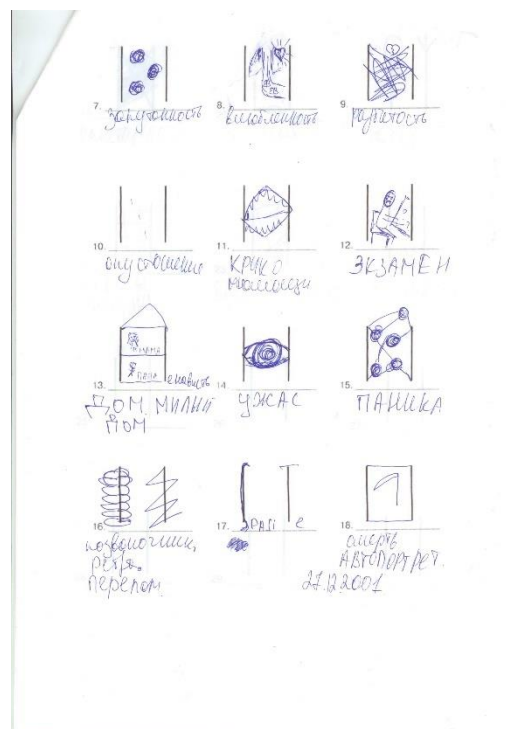 7. запутанность
8. влюбленность
9. разбитость
ПВ
10. опустошение
11. КРИК О
помощи
12. ЭКЗАМЕН
МАМА
ПАПА
13. ДОМ МИЛЫЙ
ДОМ
ненависть
14 УЖАС
15. ПАНИКА
16 позвоночник,
перелом.
17. SPASI e
18. смерть
АВТОПОРТРЕТ.
27.12.2001